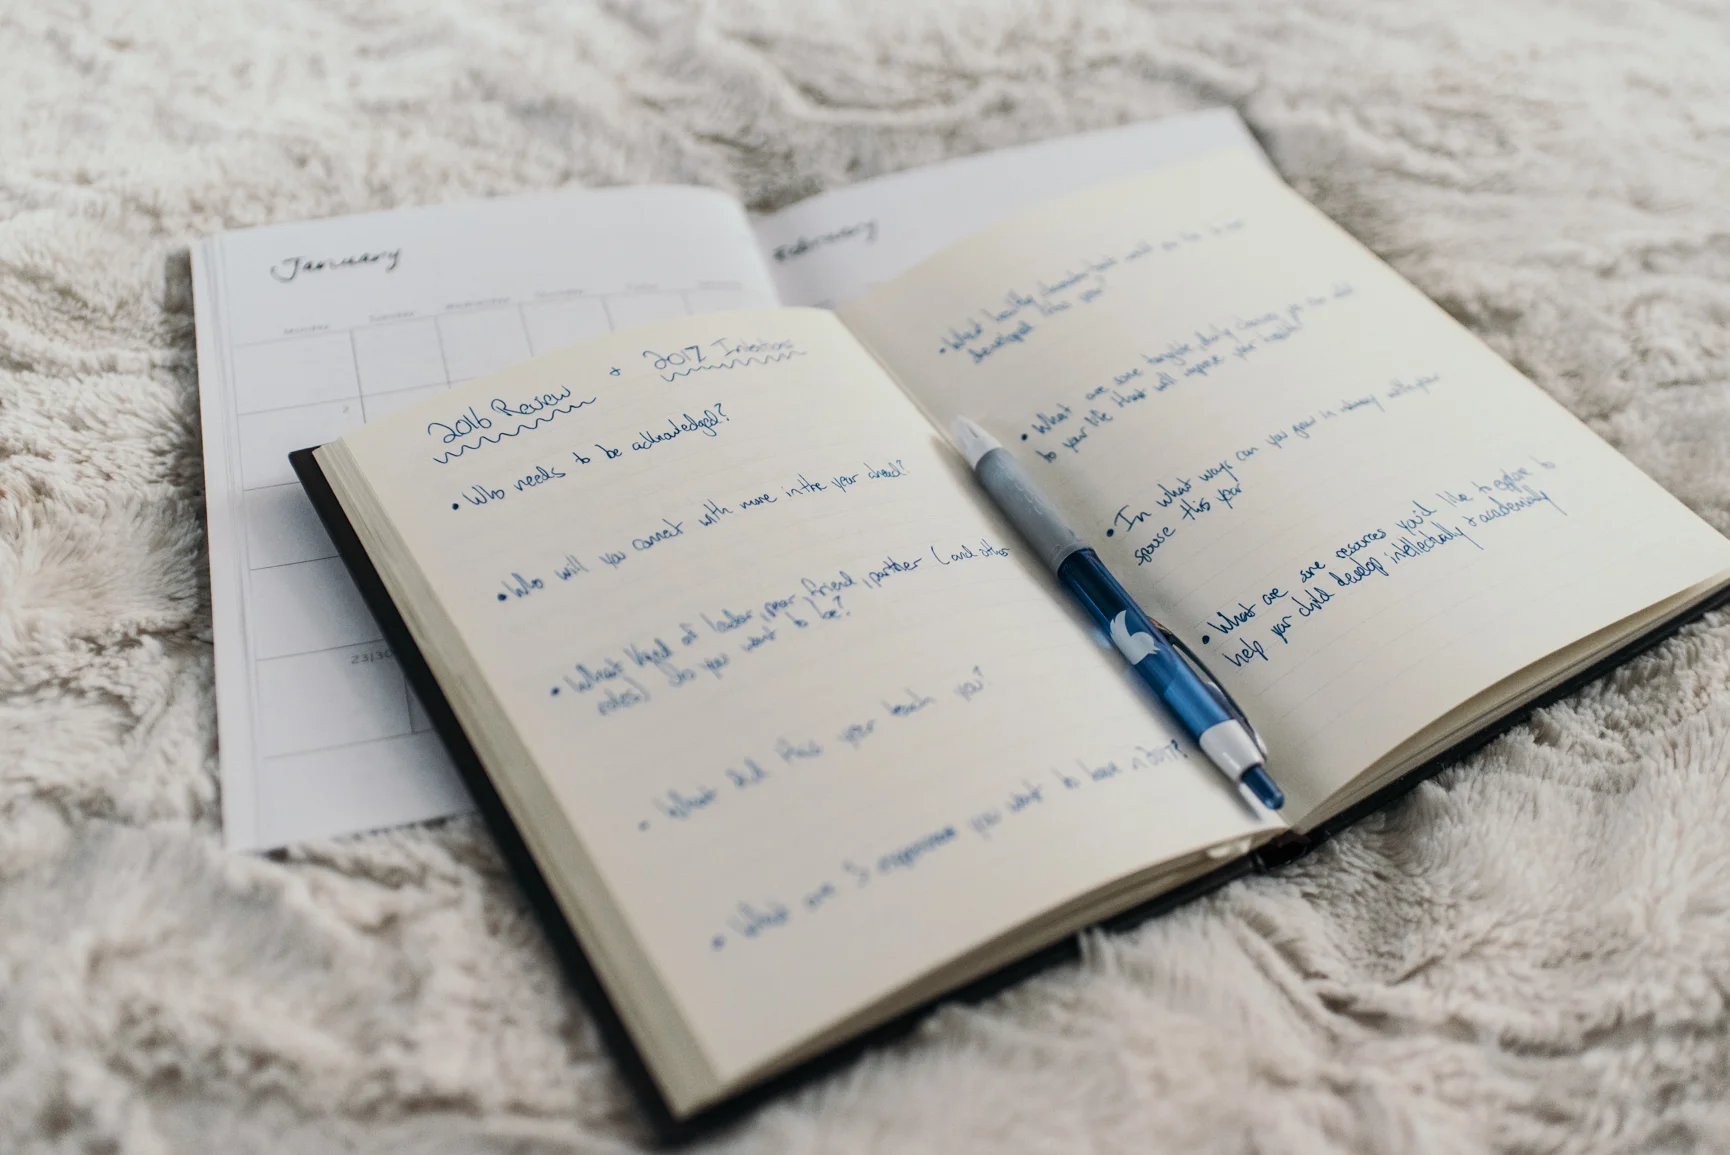 January
February
2
23/30
2016 Review + 2017 Intentions
• Who needs to be acknowledged?
• Who will you connect with more in the year ahead?
• What kind of leader, peer, friend, partner (and other
roles) do you want to be?
• What did this year teach you?
• What are 5 experiences you want to have in 2017?
• What healthy
develop this year
• What are some tangible daily changes you can add
to your life that will improve your health
• In what ways can you grow in intimacy with your
spouse this year
• What are some resources you'd like to explore to
help your child develop intellectually + academically